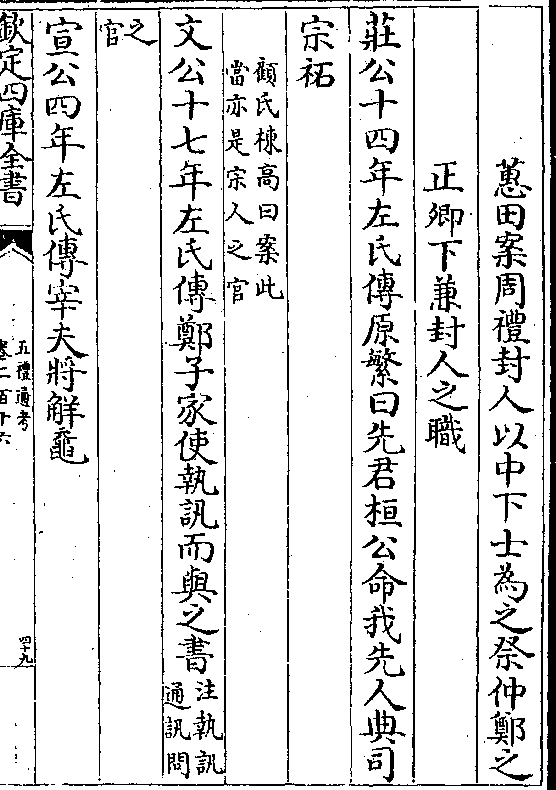 蕙田案周禮封人以中下士為之祭仲鄭之
正卿下兼封人之職
莊公十四年左氏傳原繁曰先君桓公命我先人典司
宗祏
顧氏棟高曰案此
當亦是宗人之官
文公十七年左氏傳鄭子家使執訊而與之書
注執訊
通訊問
之
官
宣公四年左氏傳宰夫將解黿
欽定四庫全書
五禮通考
卷二百十六
四十九